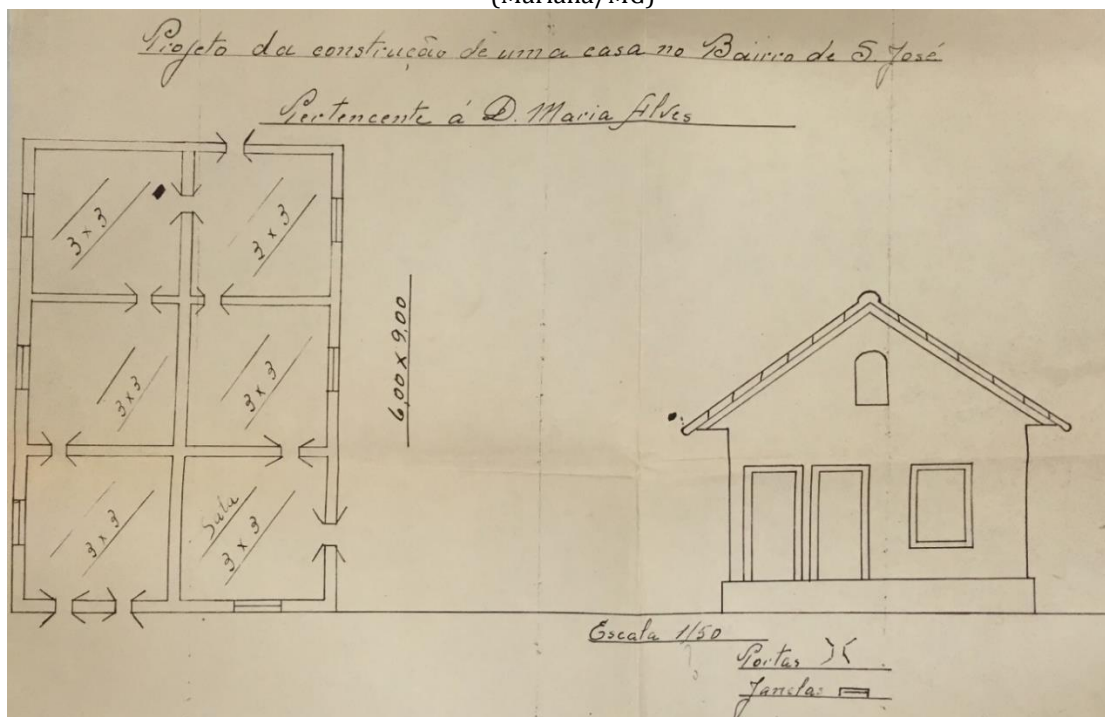 (Mariana/MG)
Projeto da construcção de uma casa no Bairro de S. José
Pertencente á D. Maria Alves
3 x 3
3 x 3
6,00 x 9,00
3 x 3
3 x 3
3 x 3
Sala
3 x 3
Escala 1/50
Portas
Janelas